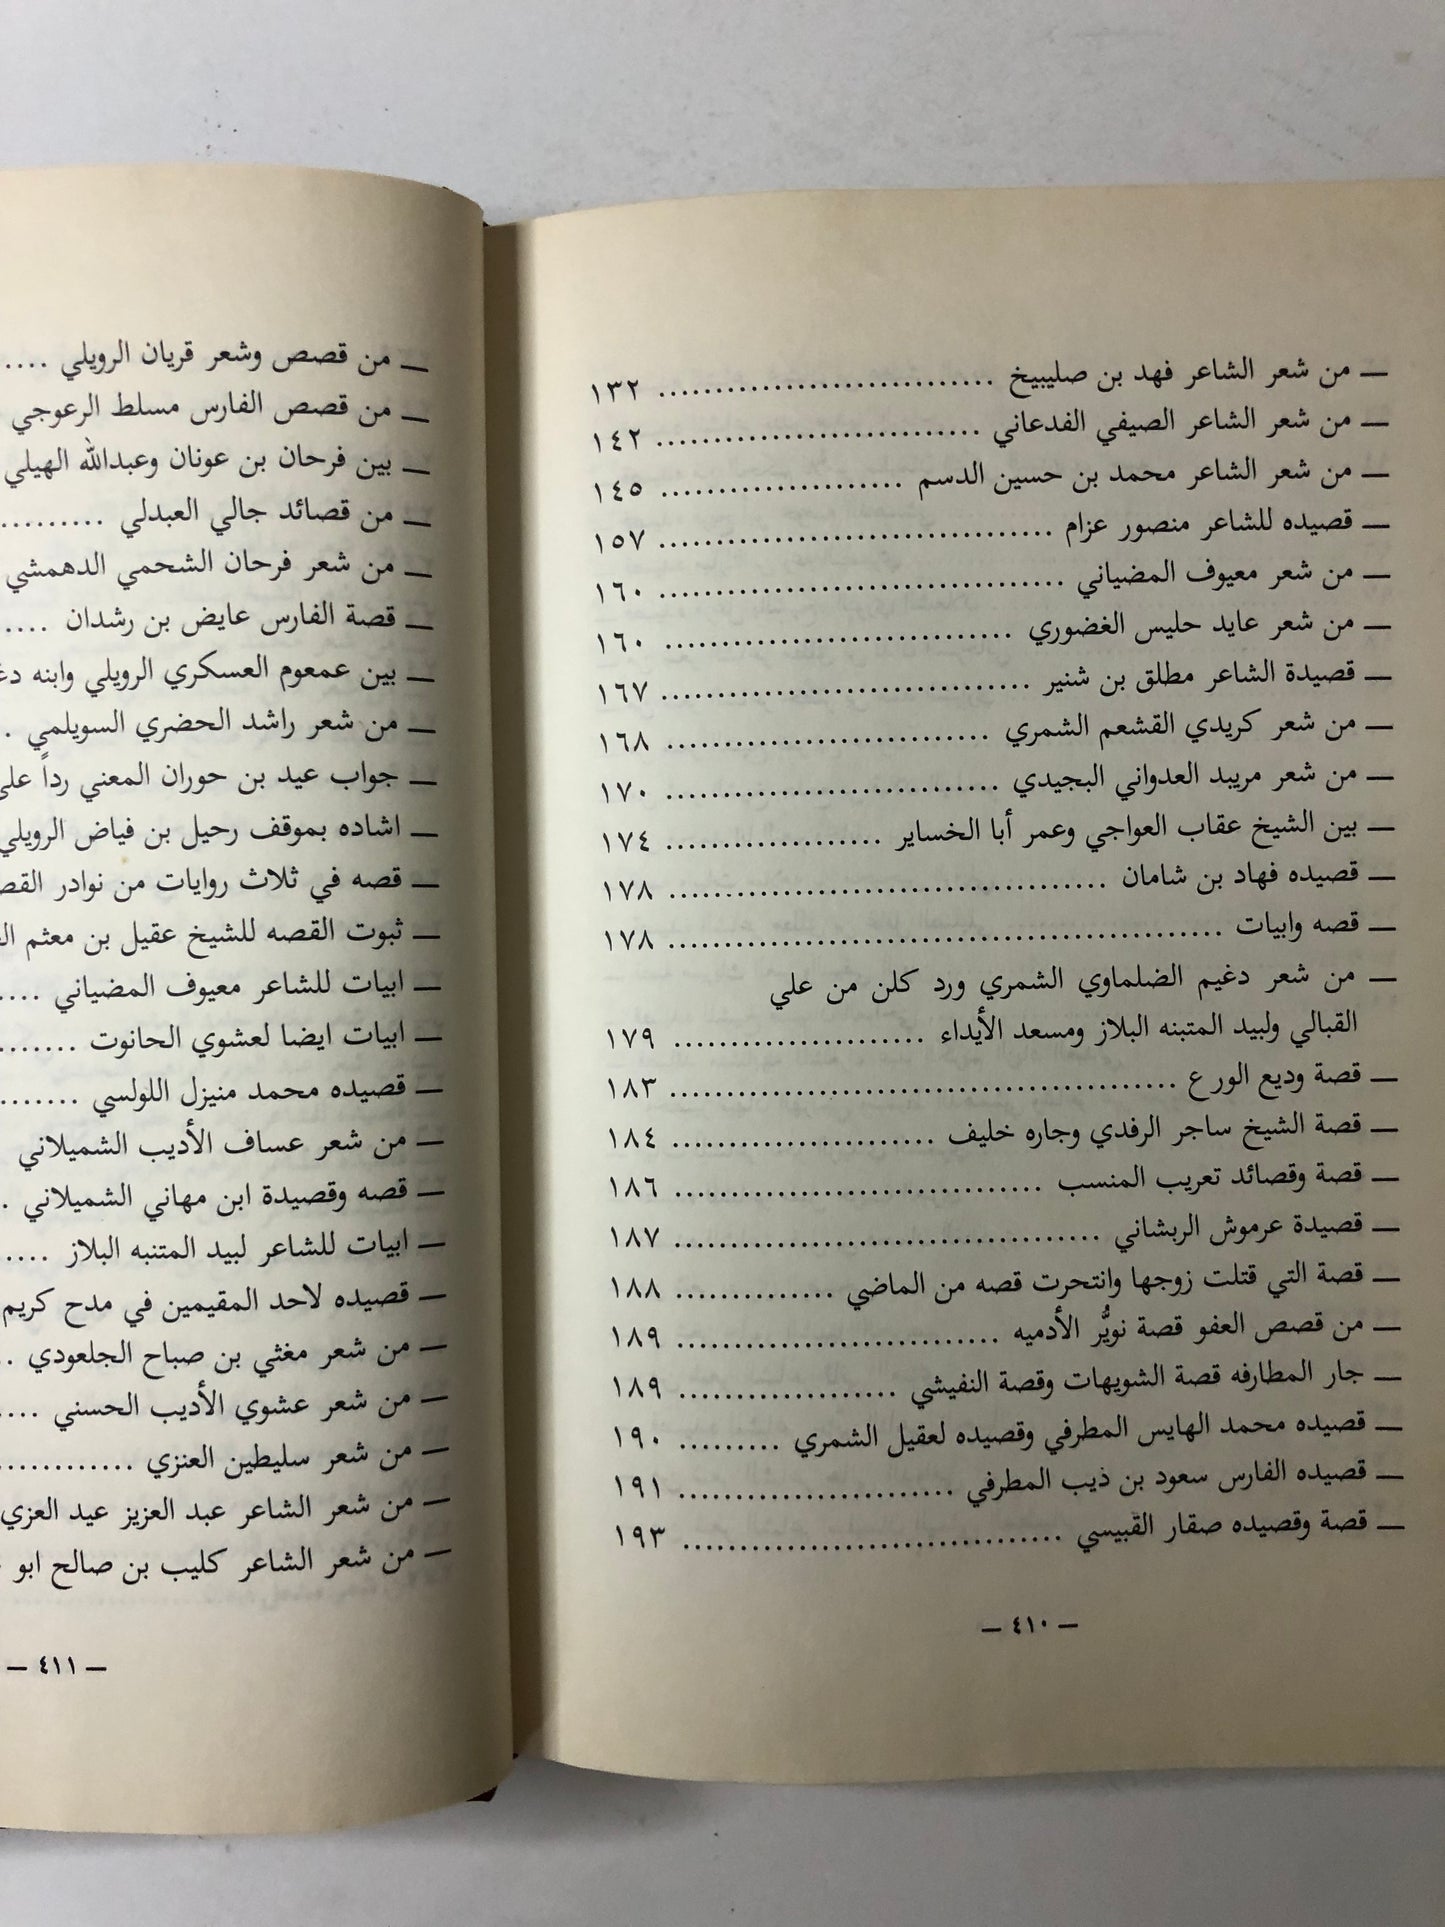 — من شعر الشاعر فهد بن صليبيخ .............................. ١٣٢
— من شعر الشاعر الصيفي الفدعاني .............................. ١٤٢
— من شعر الشاعر محمد بن حسين الدسم ...................... ١٤٥
— قصيده للشاعر منصور عزام .................................... ١٥٧
— من شعر معيوف المضياني ..................................... ١٦٠
— من شعر عايد حليس الغضوري ................................ ١٦٠
— قصيدة الشاعر مطلق بن شنير ................................. ١٦٧
— من شعر كريدي القشعم الشمري ............................. ١٦٨
— من شعر مريبد العدواني البجيدي .............................. ١٧٠
— بين الشيخ عقاب العواجي وعمر أبا الخساير .................... ١٧٤
— قصيده فهاد بن شامان ........................................ ١٧٨
— قصه وابيات .................................................. ١٧٨
— من شعر دغيم الضلماوي الشمري ورد كلن من علي
القبالي ولبيد المتبنه البلاز ومسعد الأيداء ....................... ١٧٩
— قصة وديع الورع ............................................. ١٨٣
— قصة الشيخ ساجر الرفدي وجاره خليف ........................ ١٨٤
— قصة وقصائد تعريب المنسب .................................. ١٨٦
— قصيدة عرموش الربشاني ....................................... ١٨٧
— قصة التي قتلت زوجها وانتحرت قصه من الماضي .............. ١٨٨
— من قصص العفو قصة نويُّر الأدميه ............................. ١٨٩
— جار المطارفه قصة الشويهات وقصة النفيشي .................... ١٨٩
— قصيده محمد الهايس المطرفي وقصيده لعقيل الشمري ......... ١٩٠
— قصيده الفارس سعود بن ذيب المطرفي ......................... ١٩١
— قصة وقصيده صقار القبيسي ................................... ١٩٣
— ٤١٠ —
— من قصص وشعر قريان الرويلي ....
— من قصص الفارس مسلط الرعوجي
— بين فرحان بن عونان وعبدالله الهيلي
— من قصائد جالي العبدلي .........
— من شعر فرحان الشحمي الدهمشي
— قصة الفارس عايض بن رشدان ....
— بين عمعوم العسكري الرويلي وابنه
— من شعر راشد الحضري السويلمي .
— جواب عيد بن حوران المعني رداً على
— اشاده بموقف رحيل بن فياض الرويلي
— قصه في ثلاث روايات من نوادر
— ثبوت القصه للشيخ عقيل بن معثم
— ابيات للشاعر معيوف المضياني ....
— ابيات ايضا لعشوي الحانوت .......
— قصيده محمد منيزل اللولسي .......
— من شعر عساف الأديب الشميلاني
— قصه وقصيدة ابن مهاني الشميلاني .
— ابيات للشاعر لبيد المتنبه البلاز ....
— قصيده لاحد المقيمين في مدح كريم
— من شعر مغثي بن صباح الجلعودي ..
— من شعر عشوي الأديب الحسني ....
— من شعر سليطين العنزي ............
— من شعر الشاعر عبد العزيز عيد العزي
— من شعر الشاعر كليب بن صالح ابو
— ٤١١ —